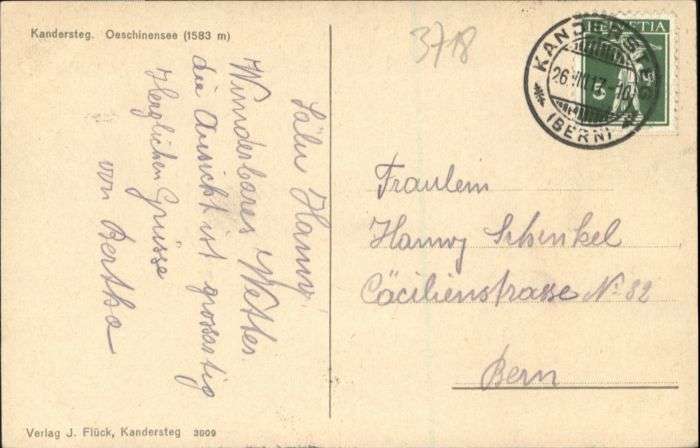 Kandersteg. Oeschinensee (1583 m)
3718
HELVETIA
5
KANDERSTEG
26.VIII.17.-10
(BERN)
Salu Hanny!
Wunderbares Wetter
die Aussicht ist grossartig
Herzlichen Grüsse
von Bertha
Fraulein
Hanny Schenkel
Cäcilienstrasse No. 32
Bern
Verlag J. Flück, Kandersteg 3909